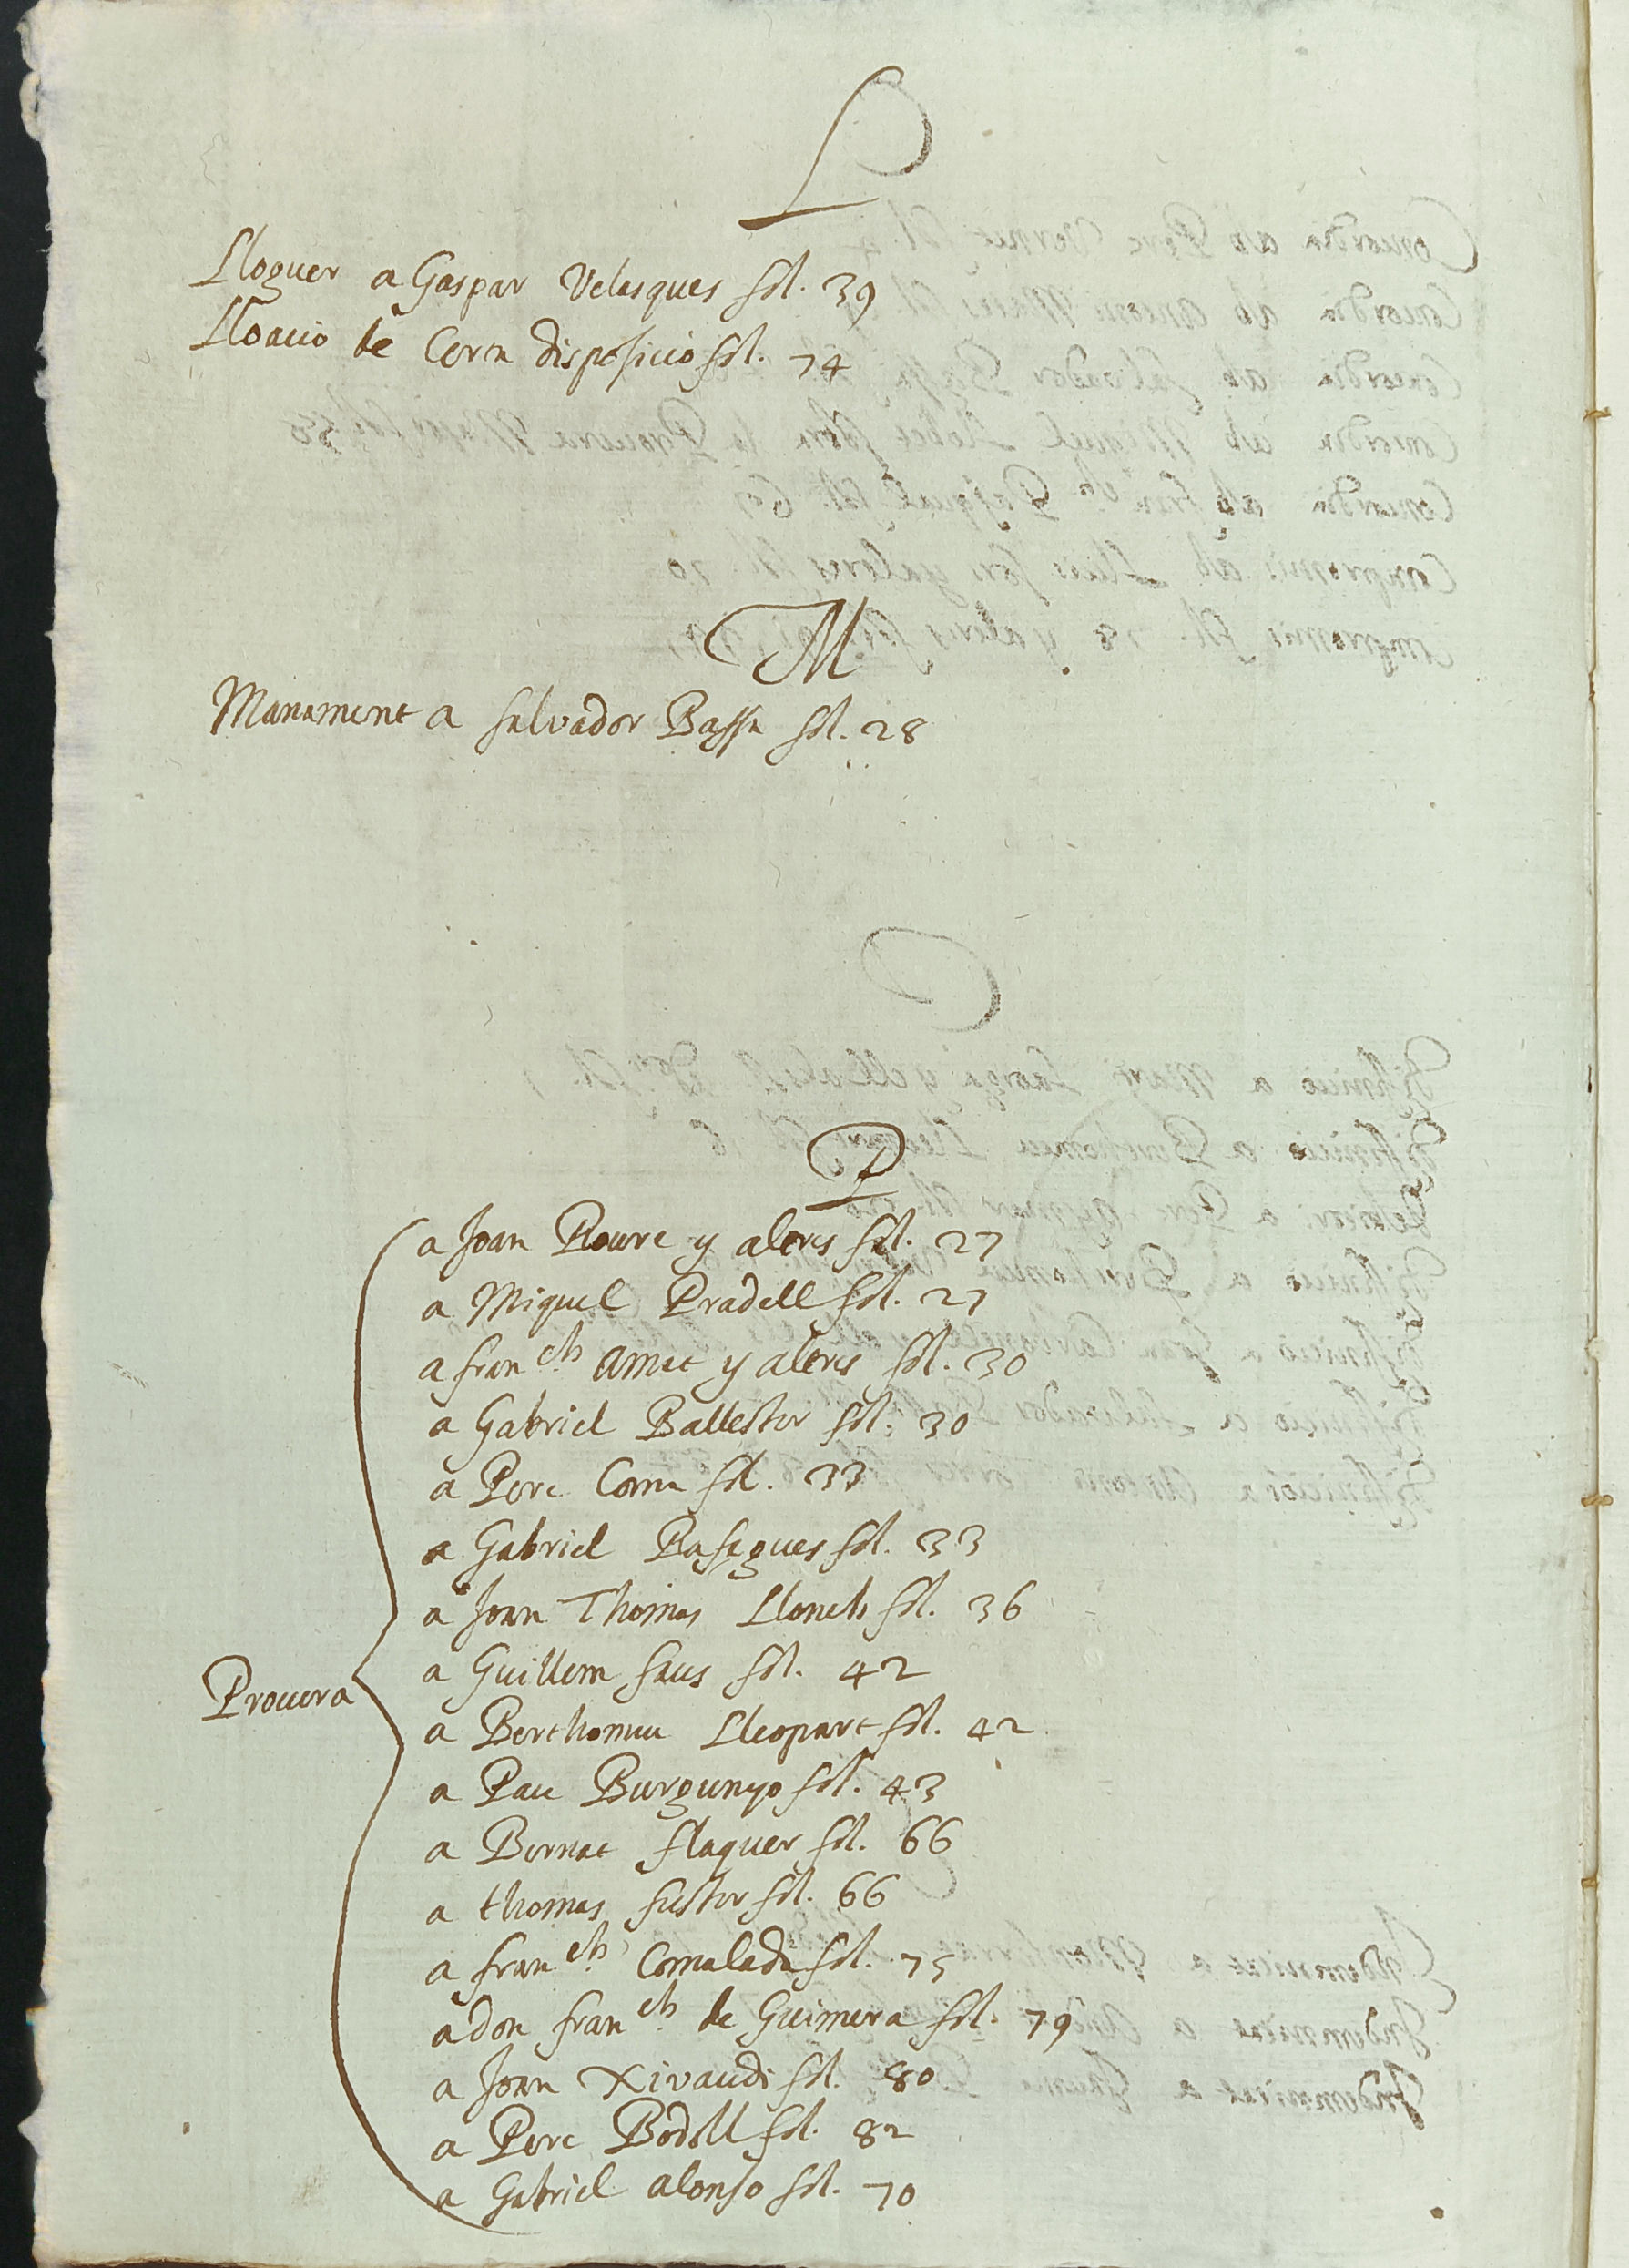 L
Lloguer a Gaspar Velasques fol. 39
Lloacio de Certa disposicio fol. 74
M
Manament a Salvador Bassa fol. 28
P
a Joan Roure y altres fol. 27
a Miquel Pradell fol. 27
a fran.ch Amat y altres fol. 30
a Gabriel Ballester fol. 30
a Pere Coma fol. 33
a Gabriel fol. 33
a Joan Thomas Llonch fol. 36
a Guillem Saus fol. 42
Procura
a Berthomeu Lleopart fol. 42
a Pau Burgunyo fol. 43
a Bernat flaquer fol. 66
a thomas fuster fol. 66
a fran.ch Comalada fol. 75
a don fran.ch de Guimera fol. 79
a Joan Xivaudi fol. 80
a Pere Bodell fol. 82
a Gabriel alonso fol. 70